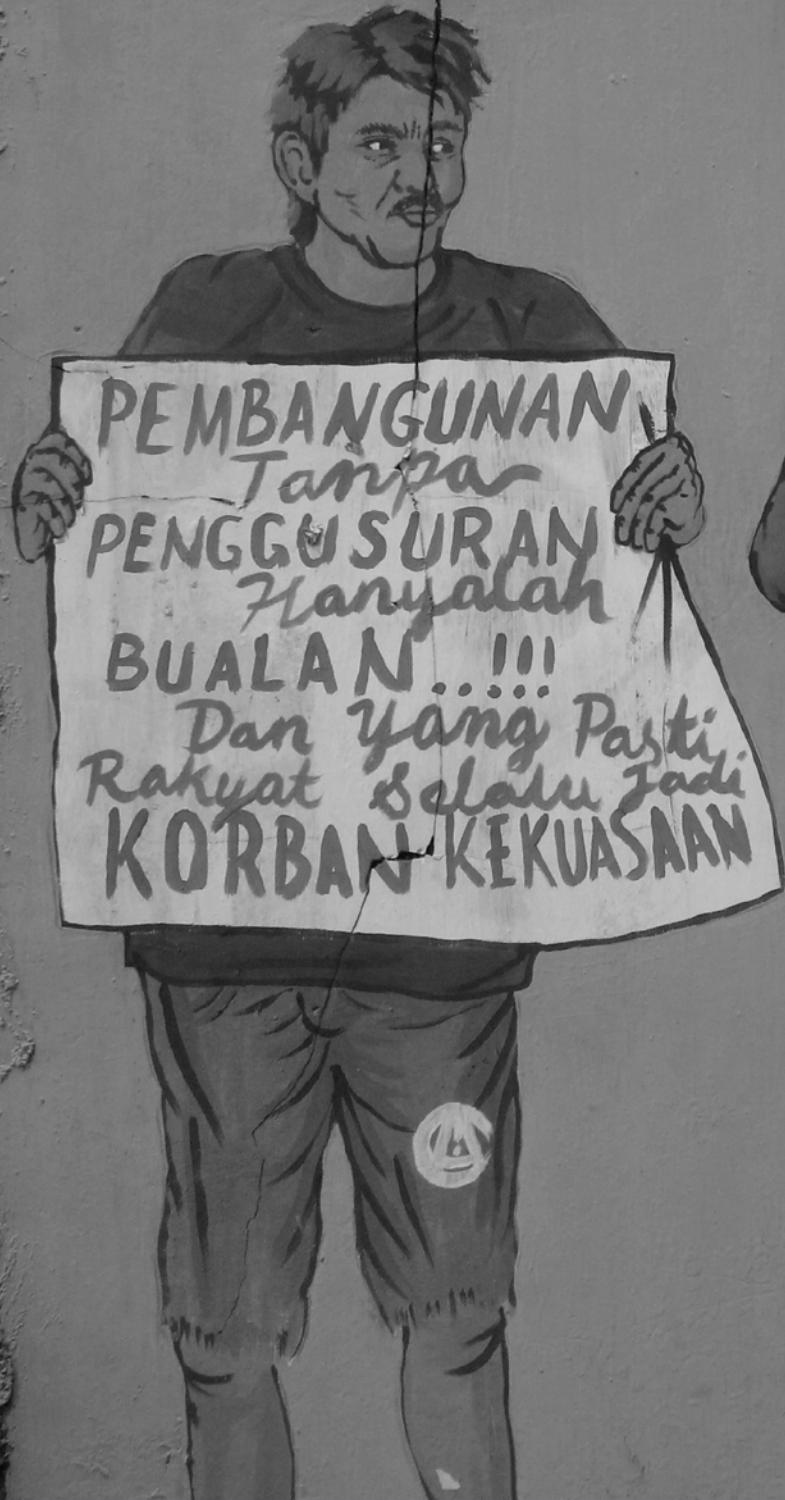 PEMBANGUNAN
Tanpa
PENGGUSURAN
Hanyalah
BUALAN..!!!
Dan Yang Pasti
Rakyat Selalu Jadi
KORBAN KEKUASAAN